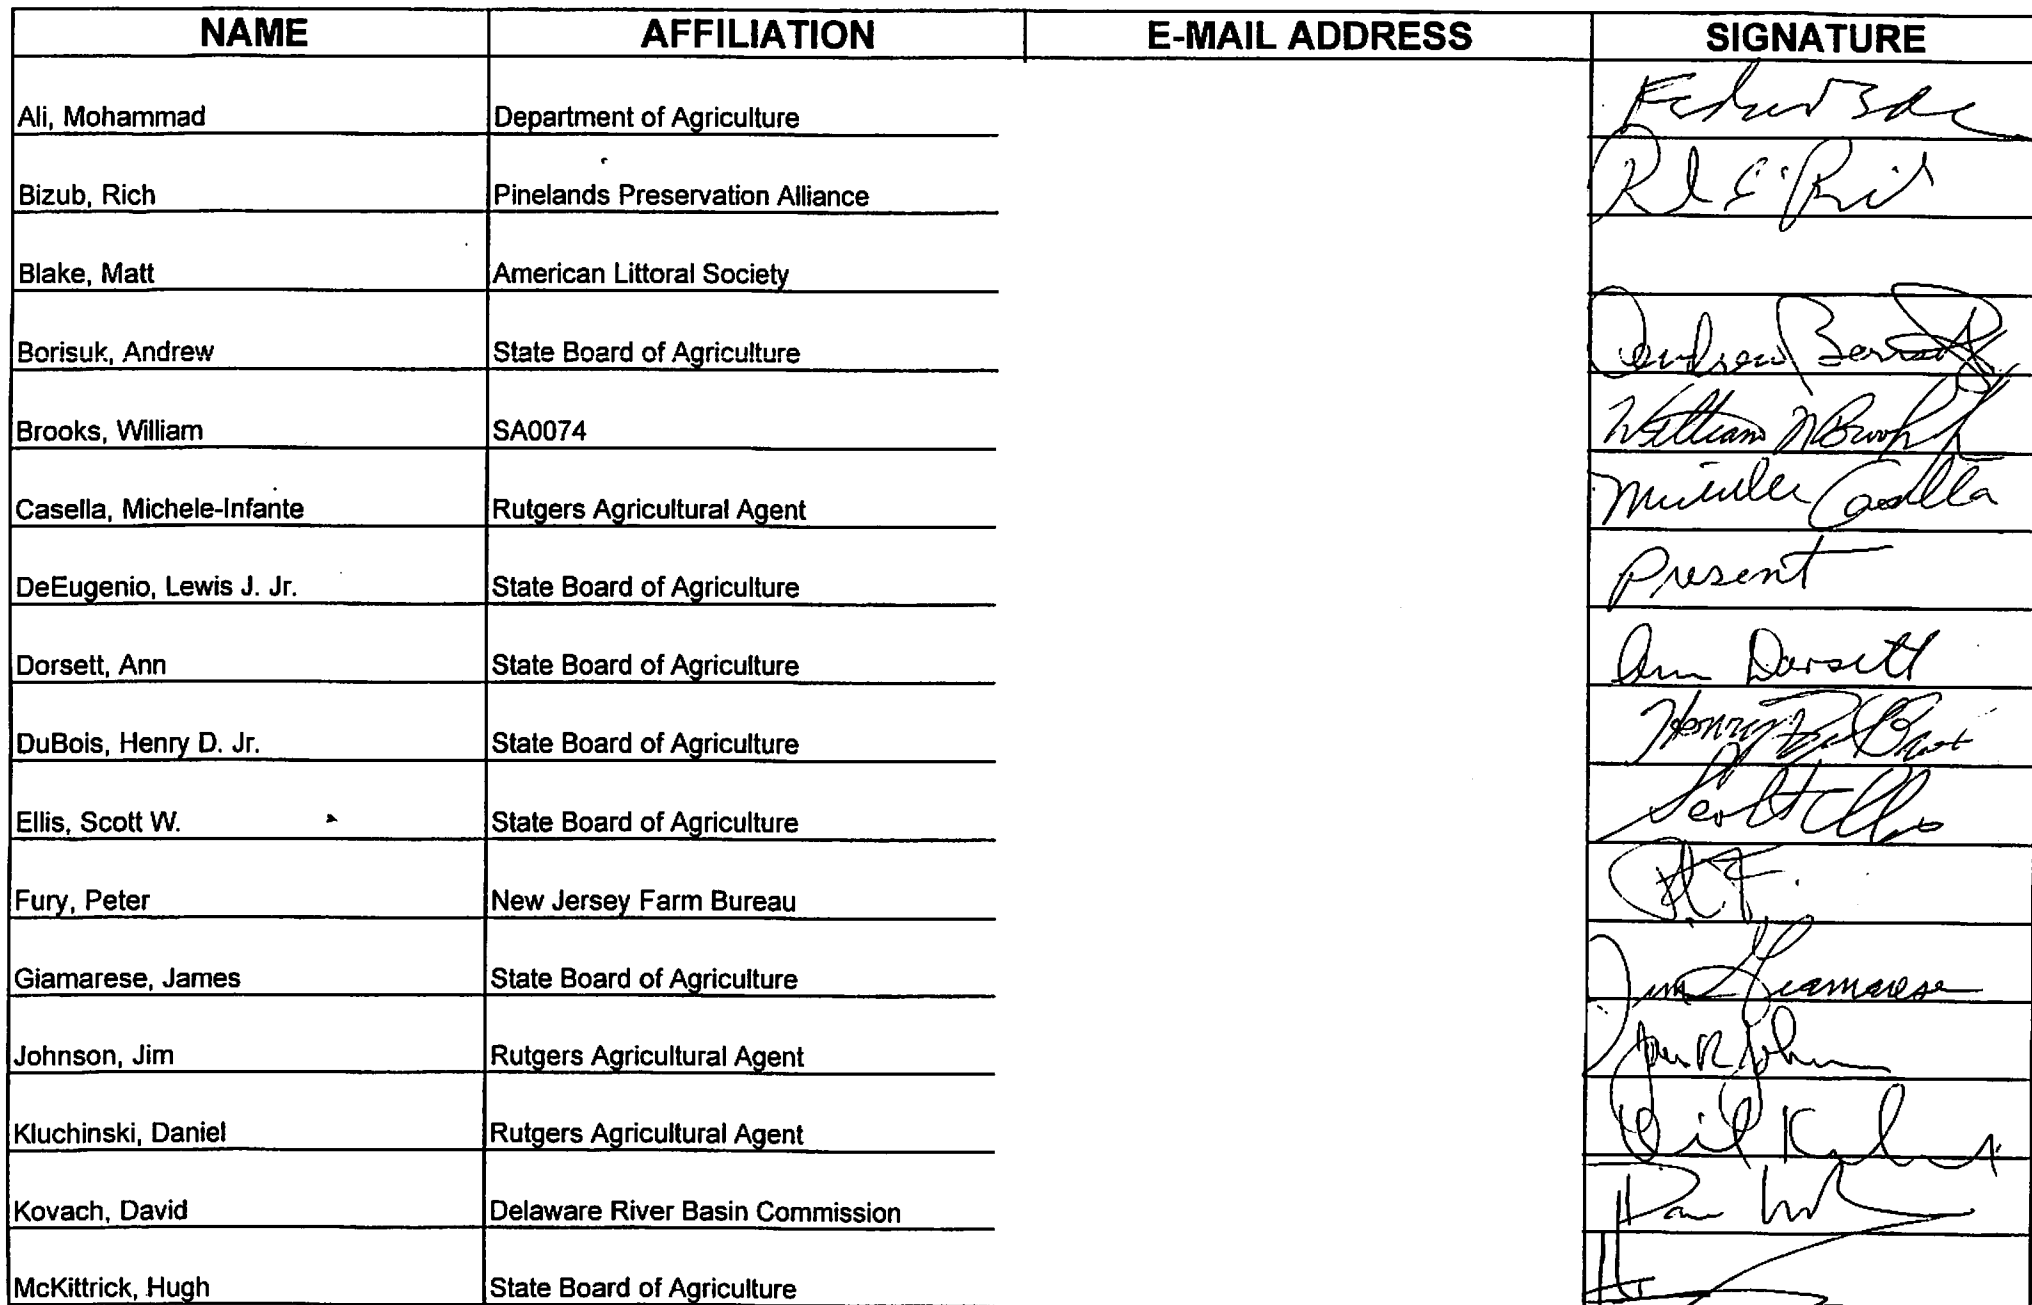 NAME AFFILIATION E-MAIL ADDRESS SIGNATURE
Ali, Mohammad Department of Agriculture
Bizub, Rich Pinelands Preservation Alliance
Blake, Matt American Littoral Society
Borisuk, Andrew State Board of Agriculture Andrew
Brooks, William SA0074 William
Casella, Michele-Infante Rutgers Agricultural Agent Michele Casella
DeEugenio, Lewis J. Jr. State Board of Agriculture Present
Dorsett, Ann State Board of Agriculture Ann Dorsett
DuBois, Henry D. Jr. State Board of Agriculture Henry
Ellis, Scott W. State Board of Agriculture Scott Ellis
Fury, Peter New Jersey Farm Bureau
Giamarese, James State Board of Agriculture Jim Giamarese
Johnson, Jim Rutgers Agricultural Agent
Kluchinski, Daniel Rutgers Agricultural Agent
Kovach, David Delaware River Basin Commission
McKittrick, Hugh State Board of Agriculture